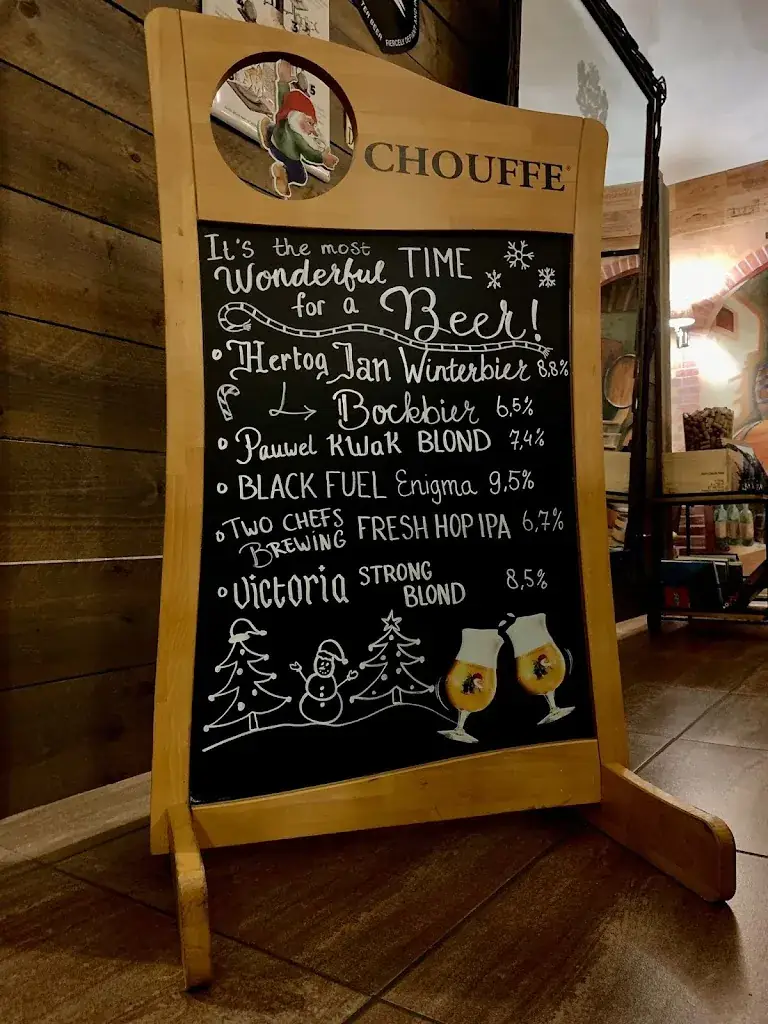 CHOUFFE
It's the most
Wonderful TIME
for a Beer!
Hertog Jan Winterbier 8,8%
Bockbier 6,5%
Pauwel KWAK BLOND 7,4%
BLACK FUEL Enigma 9,5%
TWO CHEFS
BREWING FRESH HOP IPA 6,7%
Victoria STRONG
BLOND 8,5%